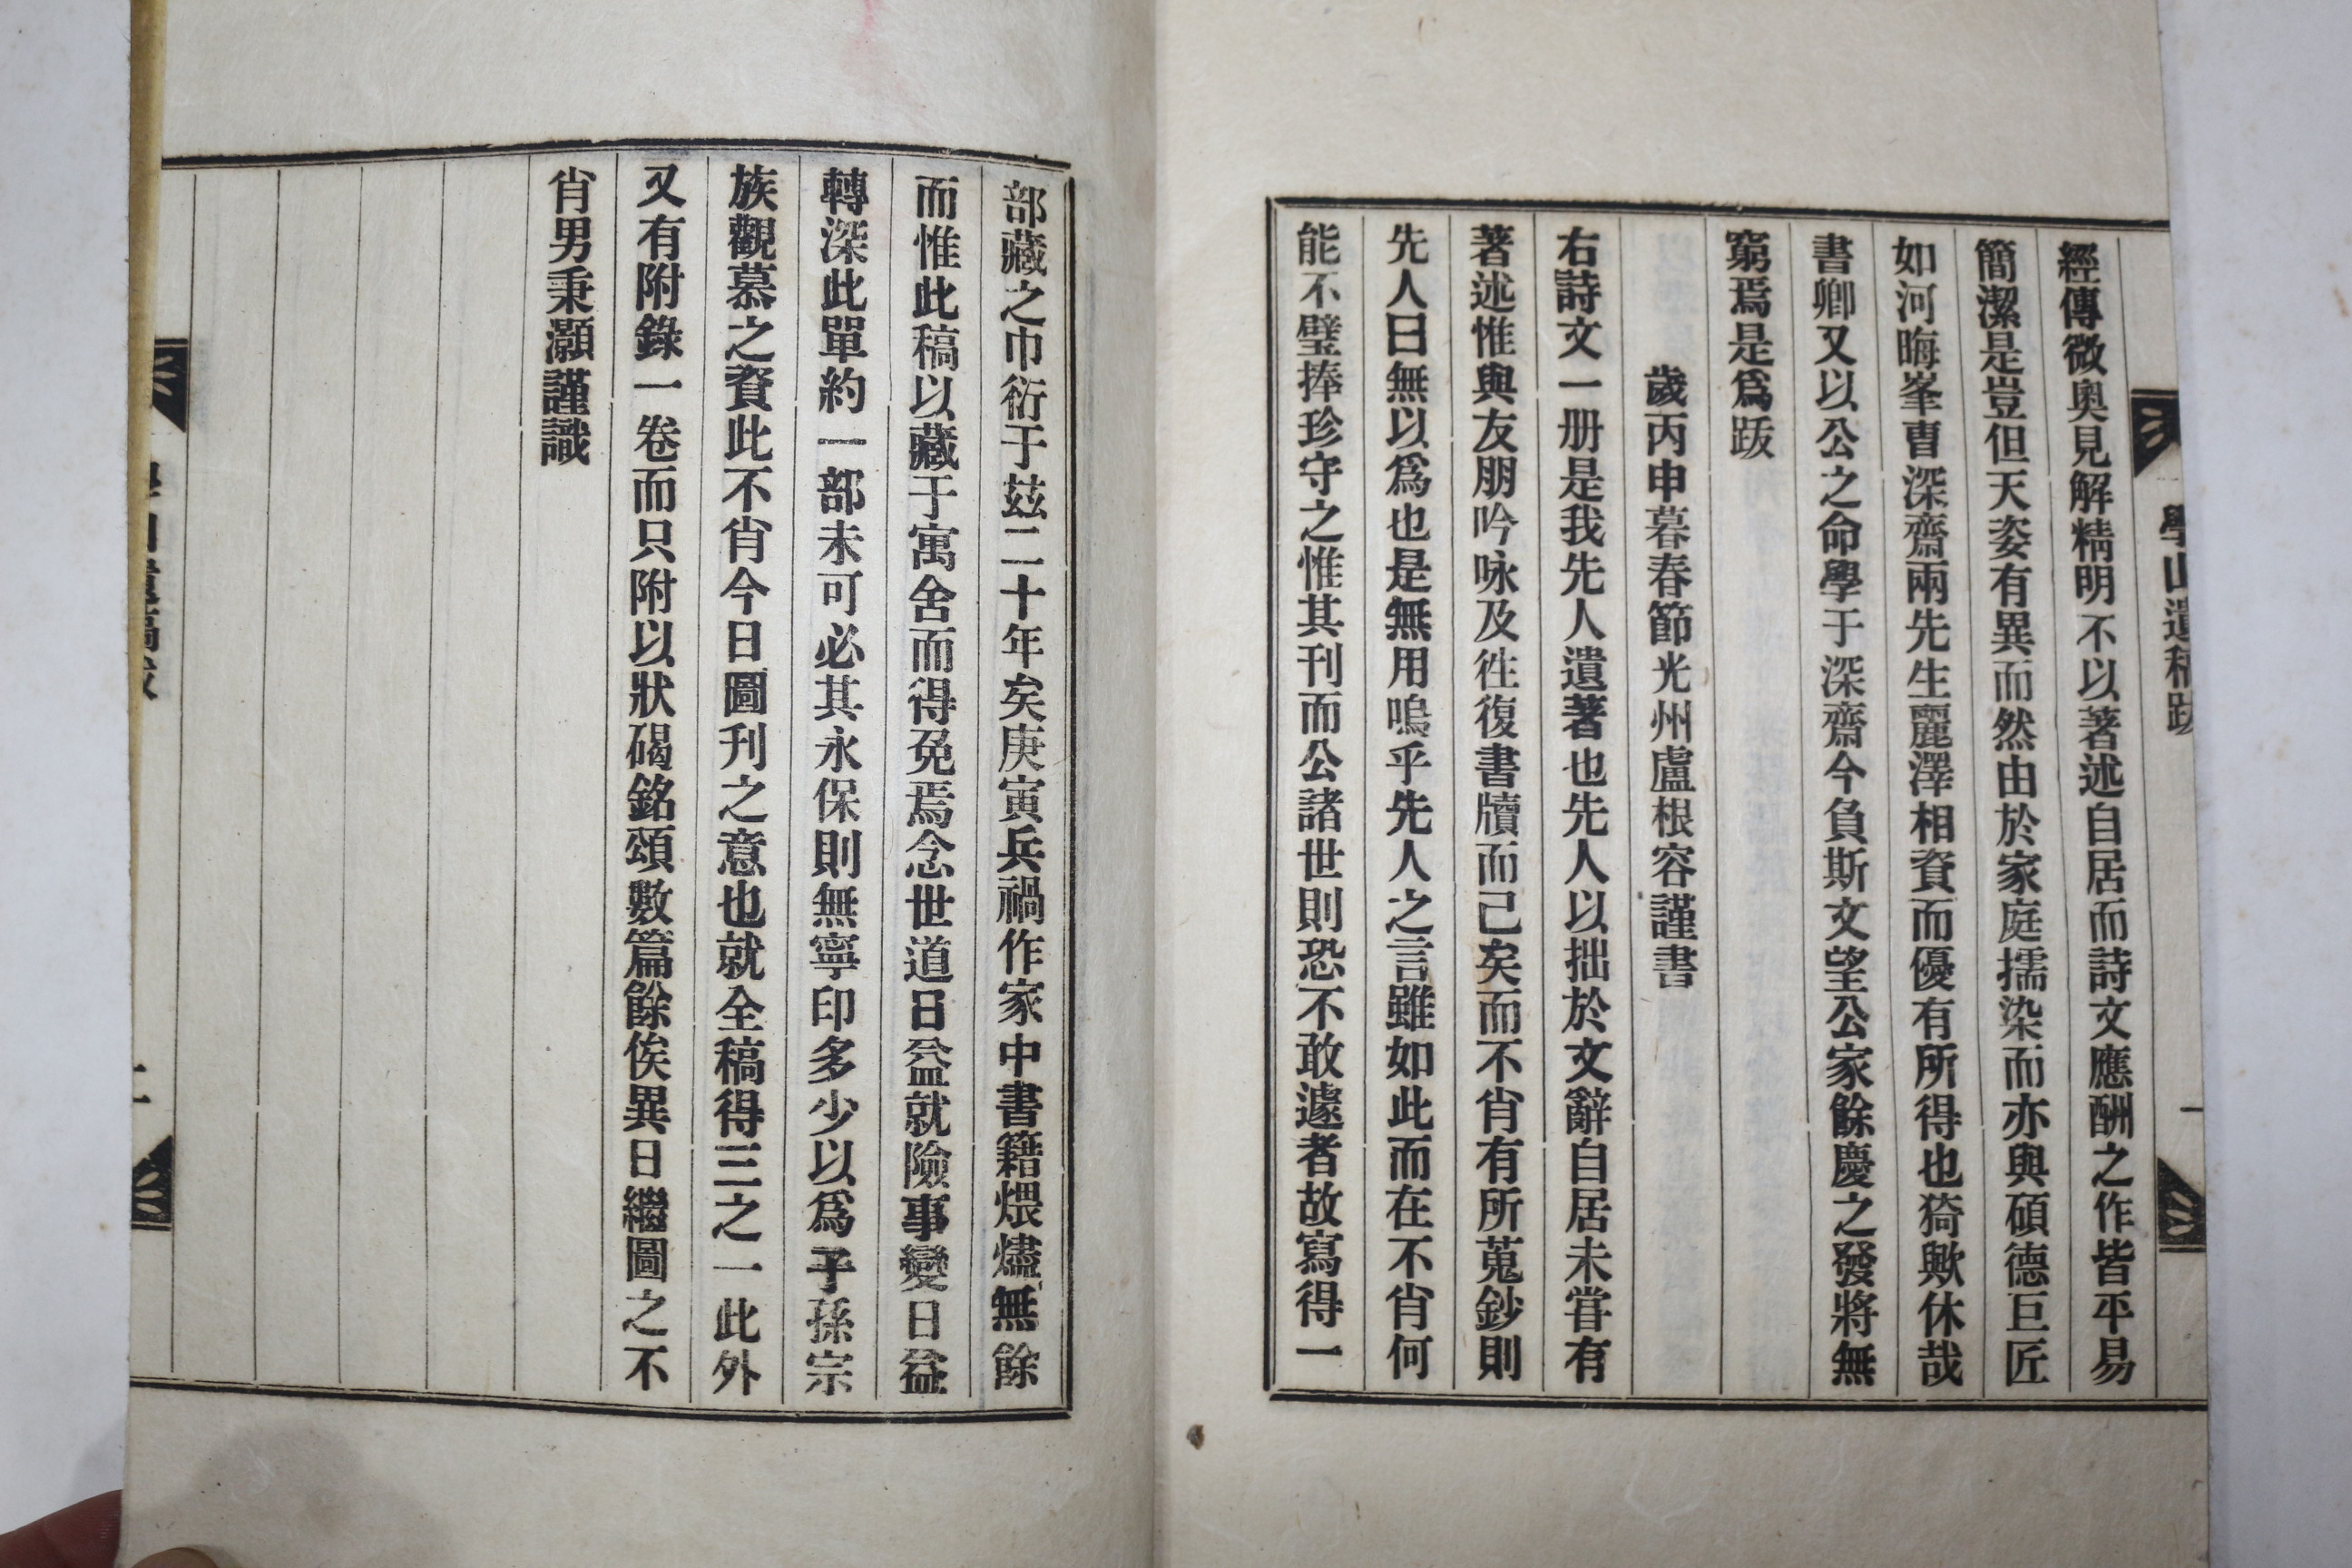 學山遺稿跋
一
經傳微奧見解精明不以著述自居而詩文應酬之作皆平易
簡潔是豈但天姿有異而然由於家庭擩染而亦與碩德巨匠
如河晦峯曺深齋兩先生麗澤相資而優有所得也猗歟休哉
書卿又以公之命學于深齋今負斯文望公家餘慶之發將無
窮焉是爲跋
歲丙申暮春節光州盧根容謹書
右詩文一册是我先人遺著也先人以拙於文辭自居未甞有
著述惟與友朋吟咏及徃復書牘而已矣而不肖有所蒐鈔則
先人曰無以爲也是無用嗚乎先人之言雖如此而在不肖何
能不璧捧珍守之惟其刊而公諸世則恐不敢遽者故寫得一
部藏之巾衍于茲二十年矣庚寅兵禍作家中書籍煨燼無餘
而惟此稿以藏于寓舍而得免焉念世道日益就險事變日益
轉深此單約一部未可必其永保則無寧印多少以爲子孫宗
族觀慕之資此不肖今日圖刊之意也就全稿得三之一此外
又有附錄一卷而只附以狀碣銘頌數篇餘俟異日繼圖之不
肖男秉灝謹識